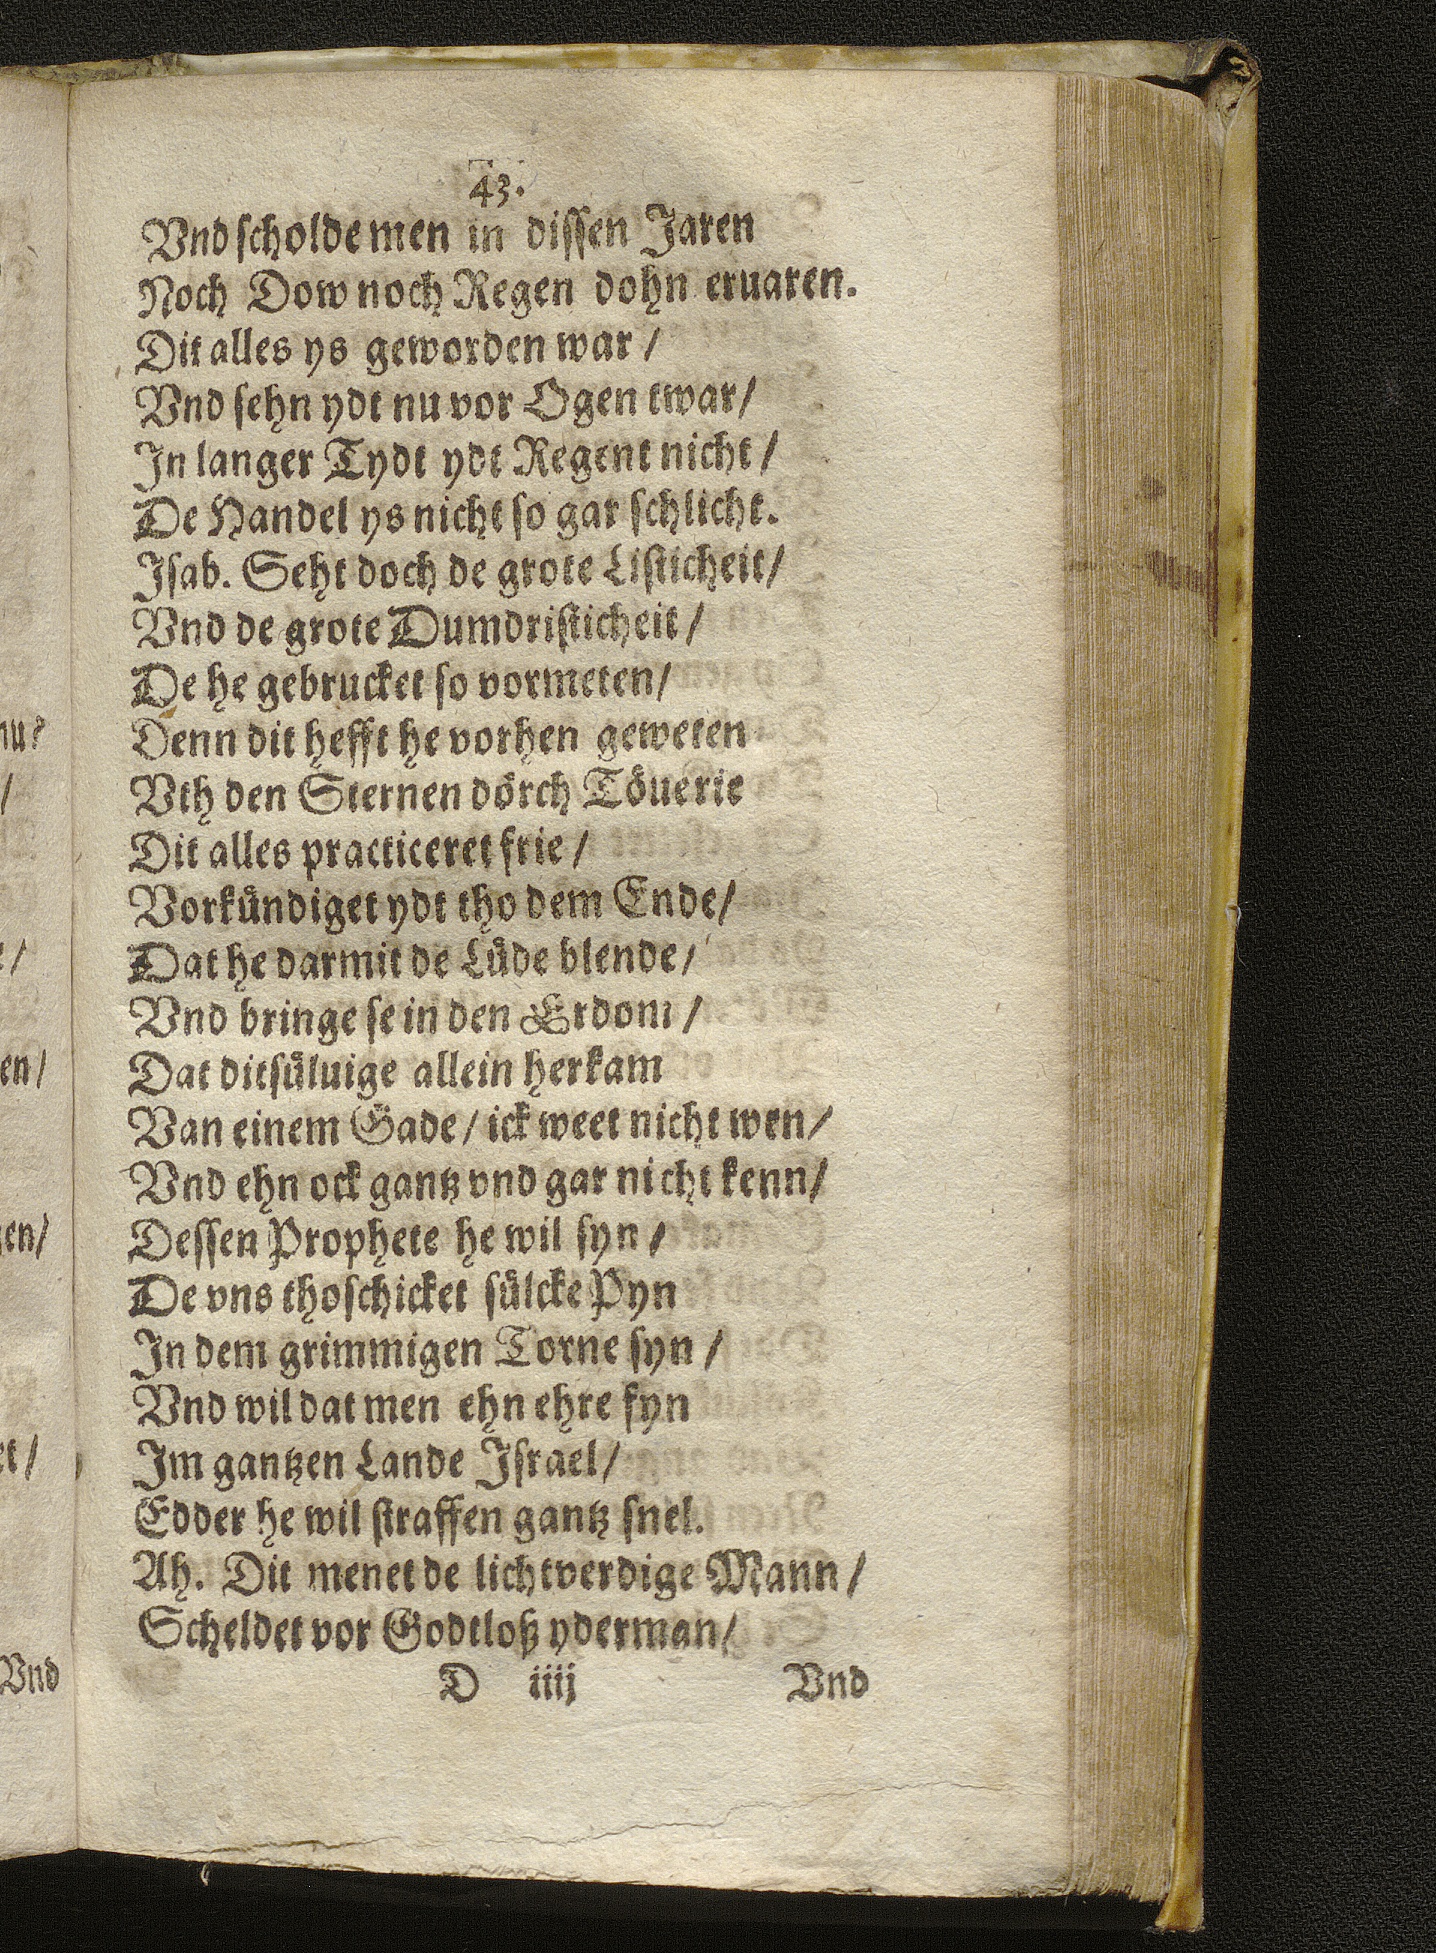 43.
Vnd scholde men in dissen Jaren
Noch Dow noch Regen dohn eruaren.
Dit alles ys geworden war /
Vnd sehn ydt nu vor Ogen twar /
In langer Tydt ydt Regent nicht /
De Handel ys nicht so gar schlicht.
Isab. Seht doch de grote Listicheit /
Vnd de grote Dumdristicheit /
De he gebrucket so vormeten /
Denn dit hefft he vorhen geweten
Vth den Sternen dörch Töuerie
Dit alles practiceret frie /
Vorkündiget ydt tho dem Ende /
Dat he darmit de Lüde blende /
Vnd bringe se in den Erdom /
Dat ditsüluige allein herkam
Van einem Gade / ick weet nicht wen /
Vnd ehn ock gantz vnd gar nicht kenn /
Dessen Prophete he wil syn /
De vns thoschicket sülcke Pyn
In dem grimmigen Torne syn /
Vnd wil dat men ehn ehre fyn
Im gantzen Lande Israel /
Edder he wil straffen gantz snel.
Ah. Dit menet de lichtverdige Mann /
Scheldet vor Godtloß yderman /
D iiij Vnd
nu?
/
/
en /
en /
t /
Vnd